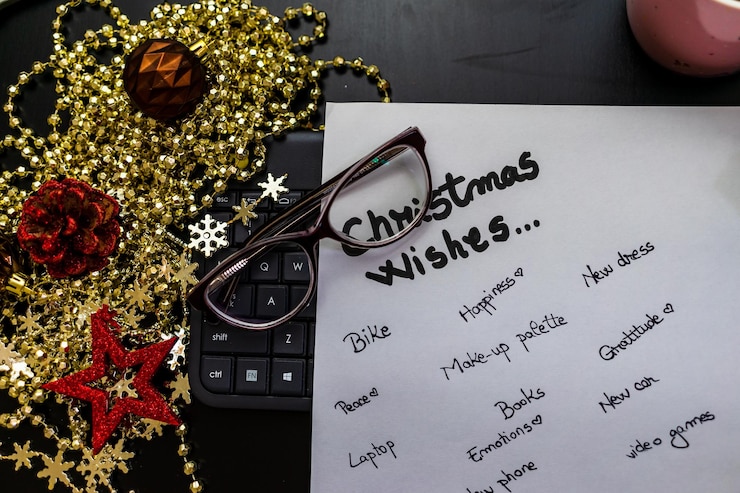 Christmas
Wishes...
New dress
Happiness♡
Bike
Make-up palette
Gratitude♡
Peace♡
Books
New car
Laptop
Emotions♡
video games
phone
esc
Q
W
A
shift
Z
ctrl
FN